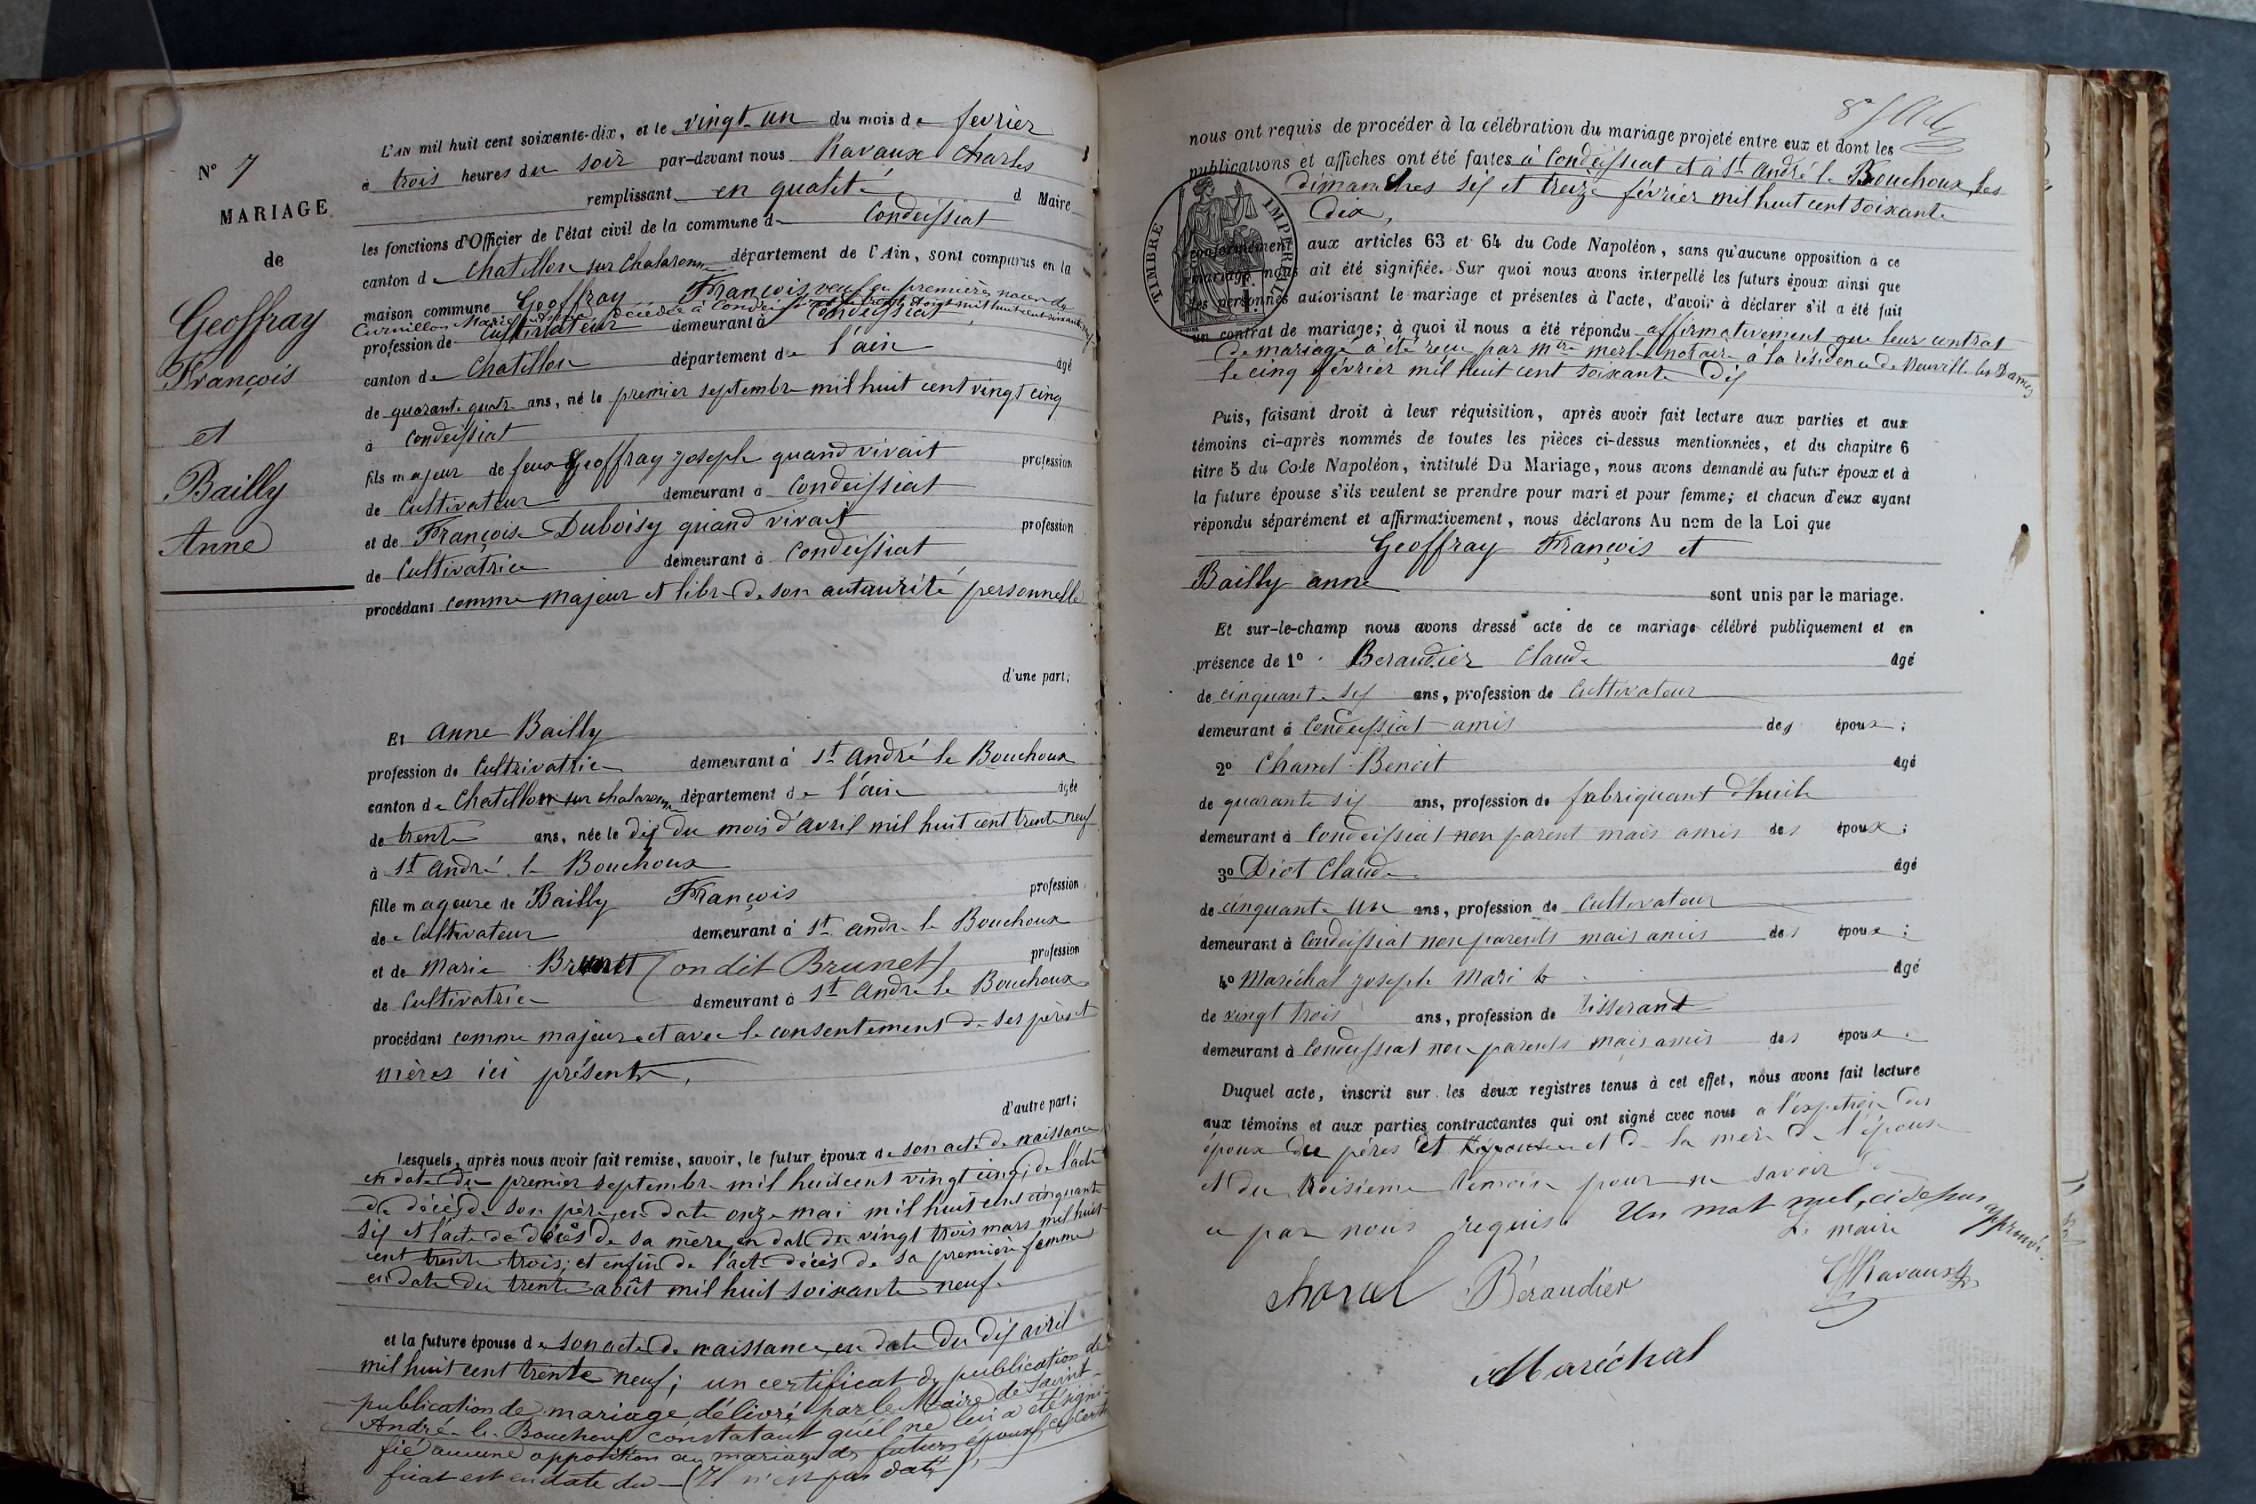 N° 7
MARIAGE
de
Geoffray
François
et
Bailly
Anne
L'AN mil huit cent soixante-dix, et le vingt-un du mois de fevrier
à trois heures du soir par-devant nous Ravaux Charles
remplissant en qualité d Maire
les fonctions d'Officier de l'état civil de la commune de Condeissiat
canton de Chatillon sur Chalaronne département de l'Ain, sont comparus en la
maison commune Geoffray François veuf en premières noces de
Curnillon Marie décédée à Condeissiat le trente août mil huit cent soixante neuf
profession de Cultivateur demeurant à Condeissiat
canton de Chatillon département de l'ain âgé
de quarante quatre ans, né le premier septembre mil huit cent vingt cinq
à Condeissiat
fils majeur de feux Geoffray joseph quand vivait profession
de Cultivateur demeurant à Condeissiat
et de Françoise Duboisy quand vivait profession
de Cultivatrice demeurant à Condeissiat
procédant comme majeur et libre de son autaurité personnelle
d'une part;
Et Anne Bailly
profession de Cultivatrice demeurant à St André le Bouchoux
canton de Chatillon sur chalaronne département de l'ain âgée
de trente ans, née le dix du mois d'avril mil huit cent trente neuf
à St André le Bouchoux
fille mageure de Bailly François profession
de Cultivateur demeurant à St André le Bouchoux
et de Marie Brunet (on dit Brunet) profession
de Cultivatrice demeurant à St André le Bouchoux
procédant comme majeure et avec le consentement de ses pères et
mères ici présents,
d'autre part;
Lesquels, après nous avoir fait remise, savoir, le futur époux de son acte de naissance
en date du premier septembre mil huit cent vingt cinq; de l'acte
de décès de son père, en date onze mai mil huit cent cinquante
six et l'acte de décès de sa mere, en date du vingt trois mars mil huit
cent trente trois; et enfin de l'acte décès de sa première femme
en date du trente août mil huit soixante neuf.
et la future épouse de son acte de naissance, en date du dix avril
mil huit cent trente neuf; un certificat de publication de
publication de mariage délivré par le Maire de Saint-
André-le-Bouchoux constatant qu'il ne lui a été signi-
fié aucune opposition au mariage des futurs époux, ce certi
ficat est en date du — (Il n'est pas daté),
nous ont requis de procéder à la célébration du mariage projeté entre eux et dont les
publications et affiches ont été faites à Condeissiat et à St André le Bouchoux, les
dimanches six et treize février mil huit cent soixante
dix,
TIMBRE IMPERIAL
conformément aux articles 63 et 64 du Code Napoléon, sans qu'aucune opposition à ce
mariage nous ait été signifiée. Sur quoi nous avons interpellé les futurs époux ainsi que
les personnes autorisant le mariage et présentes à l'acte, d'avoir à déclarer s'il a été fait
un contrat de mariage; à quoi il nous a été répondu affirmativement que leur contrat
de mariage a été reçu par Mtre Merle notaire à la résidence de Neuville les Dames
le cinq février mil huit cent soixante dix
Puis, faisant droit à leur réquisition, après avoir fait lecture aux parties et aux
témoins ci-après nommés de toutes les pièces ci-dessus mentionnées, et du chapitre 6
titre 5 du Code Napoléon, intitulé Du Mariage, nous avons demandé au futur époux et à
la future épouse s'ils veulent se prendre pour mari et pour femme; et chacun d'eux ayant
répondu séparément et affirmativement, nous déclarons Au nom de la Loi que
Geoffray François et
Bailly anne
sont unis par le mariage.
Et sur-le-champ nous avons dressé acte de ce mariage célébré publiquement et en
présence de 1° Beraudier Claude âgé
de cinquante six ans, profession de Cultivateur
demeurant à Condeissiat amis des époux;
2° Charrel Benoit âgé
de quarante six ans, profession de fabriquant d'huile
demeurant à Condeissiat non parent mais amis des époux;
3° Diot Claude âgé
de cinquante un ans, profession de Cultivateur
demeurant à Condeissiat non parents mais amis des époux;
4° Maréchal joseph Marie âgé
de vingt trois ans, profession de tisserand
demeurant à Condeissiat non parents mais amis des époux.
Duquel acte, inscrit sur les deux registres tenus à cet effet, nous avons fait lecture
aux témoins et aux parties contractantes qui ont signé avec nous a l'exeption des
époux du pères et et de la mere de l'épouse
et du troisieme temoin pour ne savoir
ce par nous requis. Un mot nul, ci dessus approuvé.
Le maire
Charrel Béraudier Ch Ravaux
Maréchal